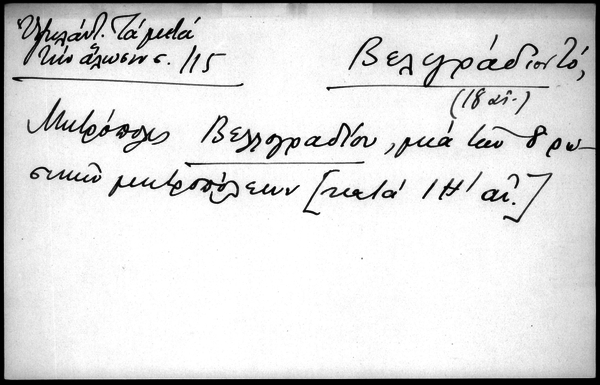 Ὑψηλάντ. Τά μετά
τήν ἅλωσιν σ. 115
Βελεγράδιον τό,
(18 αἰ.)
Μητρόπολις Βελλογραδίου, μιά τῶν 8 ρω-
σικῶν μητροπόλεων [κατά ΙΗ' αἰ.]